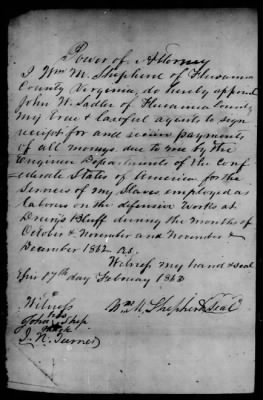 Power of Attorney
I Wm M. Shepherd of Fluvanna
County Virginia, do hereby appoint
John W. Sadler of Fluvanna County
my true & lawful agents to sign
receipt for and receive payments
of all moneys due to me by the
Engineer Departments of the Conf
ederate States of America for the
Services of my Slaves employed as
Laborers on the defensive works at
Drury's Bluff during the months of
October & November and November &
December 1862
Witness my hand & seal
this 17th day February 1863
Witness Wm M. Shepherd Seal
John his Shep
mark
J. N. Turner